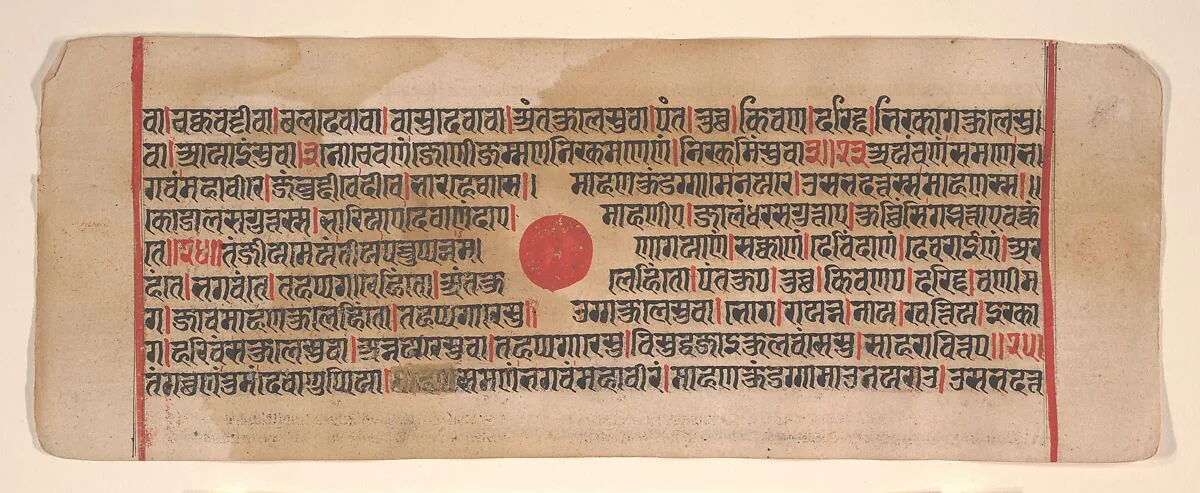 वा।चक्कवट्टीवा।बलदेवावा।वासुदेवावा।अंतकुलेसुवा।पंत।तुच्छ।किवण।दरिद्द।भिरकागकुलेसु।
वा।आयाइंसुवा।३नोचेवणंजोणीजम्मणनिरकमणेणं।निरकमिंसुवा३॥२३अयंचणंसमणेभ
गवंमहावीरे।जंबुद्दीवेदीवे।भारहेवासे॥ माहणकुंडग्गामेनयरे।उसभदत्तस्समाहणस्स॥
कोडालसगुत्तस्स।भारियाएदेवाणंदाए। माहणीए।जालंधरसगुत्ताए।कुच्छिंसिगब्भत्ताएवक्कं
ते॥२४॥तंजीयमेयंतीयपच्चुप्पन्नम। णागयाणं।सक्काणं।देविंदाणं।देवराईणं।अर
हंते।भगवंते।तहप्पगारेहिंतो।अंतकु लेहिंतो।पंतकुए।तुच्छ।किवणए।दरिद्द।वणीम
ग।जावमाहणकुलेहिंतो।तहप्पगारेसु॥ उग्गकुलेसुवा।भोग।रायन्न।नाय।खत्तिय।इरका
ग।हरिवंसकुलेसुवा।अन्नयरेसुवा।तहप्पगारेसु।विसुद्धजाइकुलवंसेसु।साहरावित्तए॥२५।
तंगच्छणंतुमंदेवाणुप्पिया।समणंभगवंमहावीरं।माहणकुंडग्गामाउनयराउ।उसभदत्त